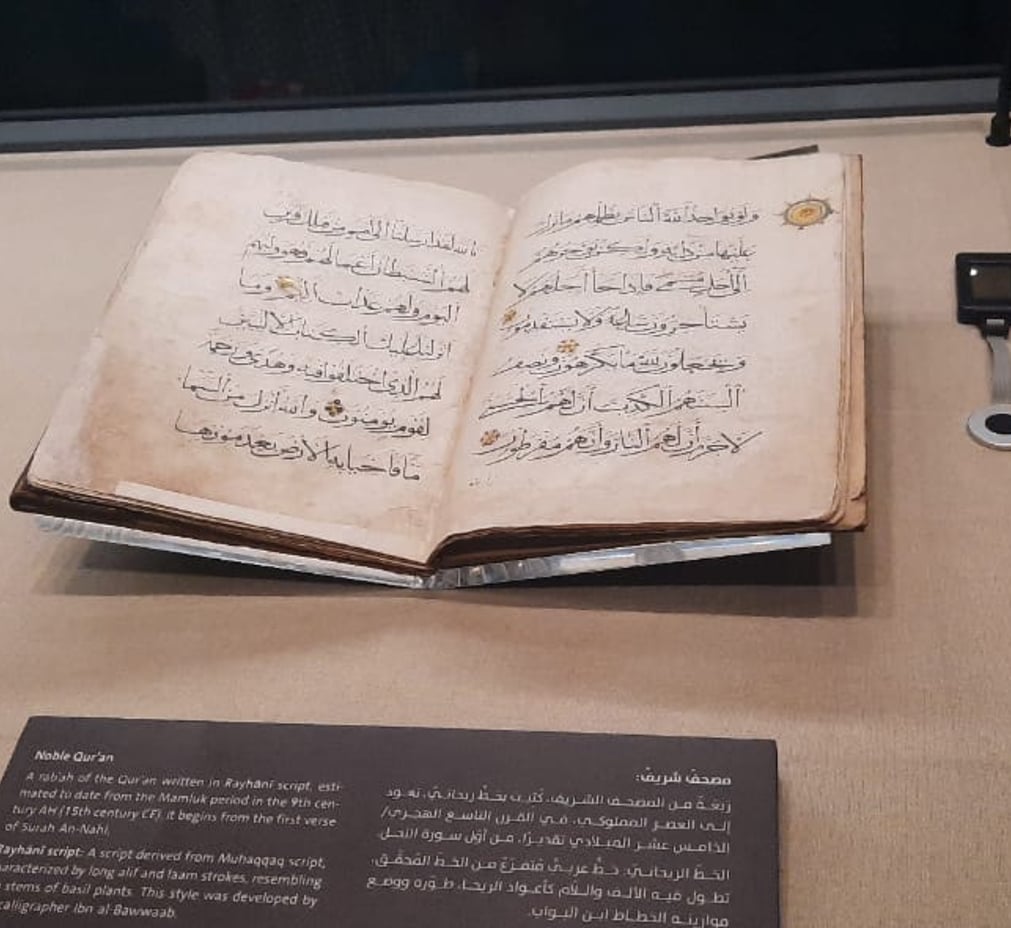 ولو يواخذ الله الناس بظلمهم ما ترك
عليها من دابة ولكن يوخرهم
الى اجل مسمى فاذا جا اجلهم لا
يستأخرون ساعة ولا يستقدمون
ويجعلون لله ما يكرهون وتصف
السنتهم الكذب ان لهم الحسنى
لا جرم ان لهم النار وانهم مفرطون
تا لله لقد ارسلنا الى امم من قبلك فزين
لهم الشيطان اعمالهم فهو وليهم
اليوم ولهم عذاب اليم وما
انزلنا عليك الكتاب الا لتبين
لهم الذي اختلفوا فيه وهدى ورحمة
لقوم يومنون والله انزل من السما
ما فاحيا به الارض بعد موتها
Noble Qur'an
A rab'ah of the Qur'an written in Rayhānī script, esti-
mated to date from the Mamluk period in the 9th cen-
tury AH (15th century CE). it begins from the first verse
of Surah An-Nahl.
Rayhānī script: A script derived from Muhaqqaq script,
characterized by long alif and laam strokes, resembling
stems of basil plants. This style was developed by
calligrapher Ibn al-Bawwaab.
مصحف شريف:
ربعَة من المصحف الشريف، كُتبت بخطّ ريحانيّ، تعود
إلى العصر المملوكي، في القرن التاسع الهجري/
الخامس عشر الميلادي تقديرًا، من أوّل سورة النحل.
الخطّ الريحانيّ: خطّ عربيّ متفرّع من الخط المحقّق،
تطول فيه الألف واللّام كأعواد الريحان، طوّره ووضع
موازينه الخطّاط ابن البوّاب.